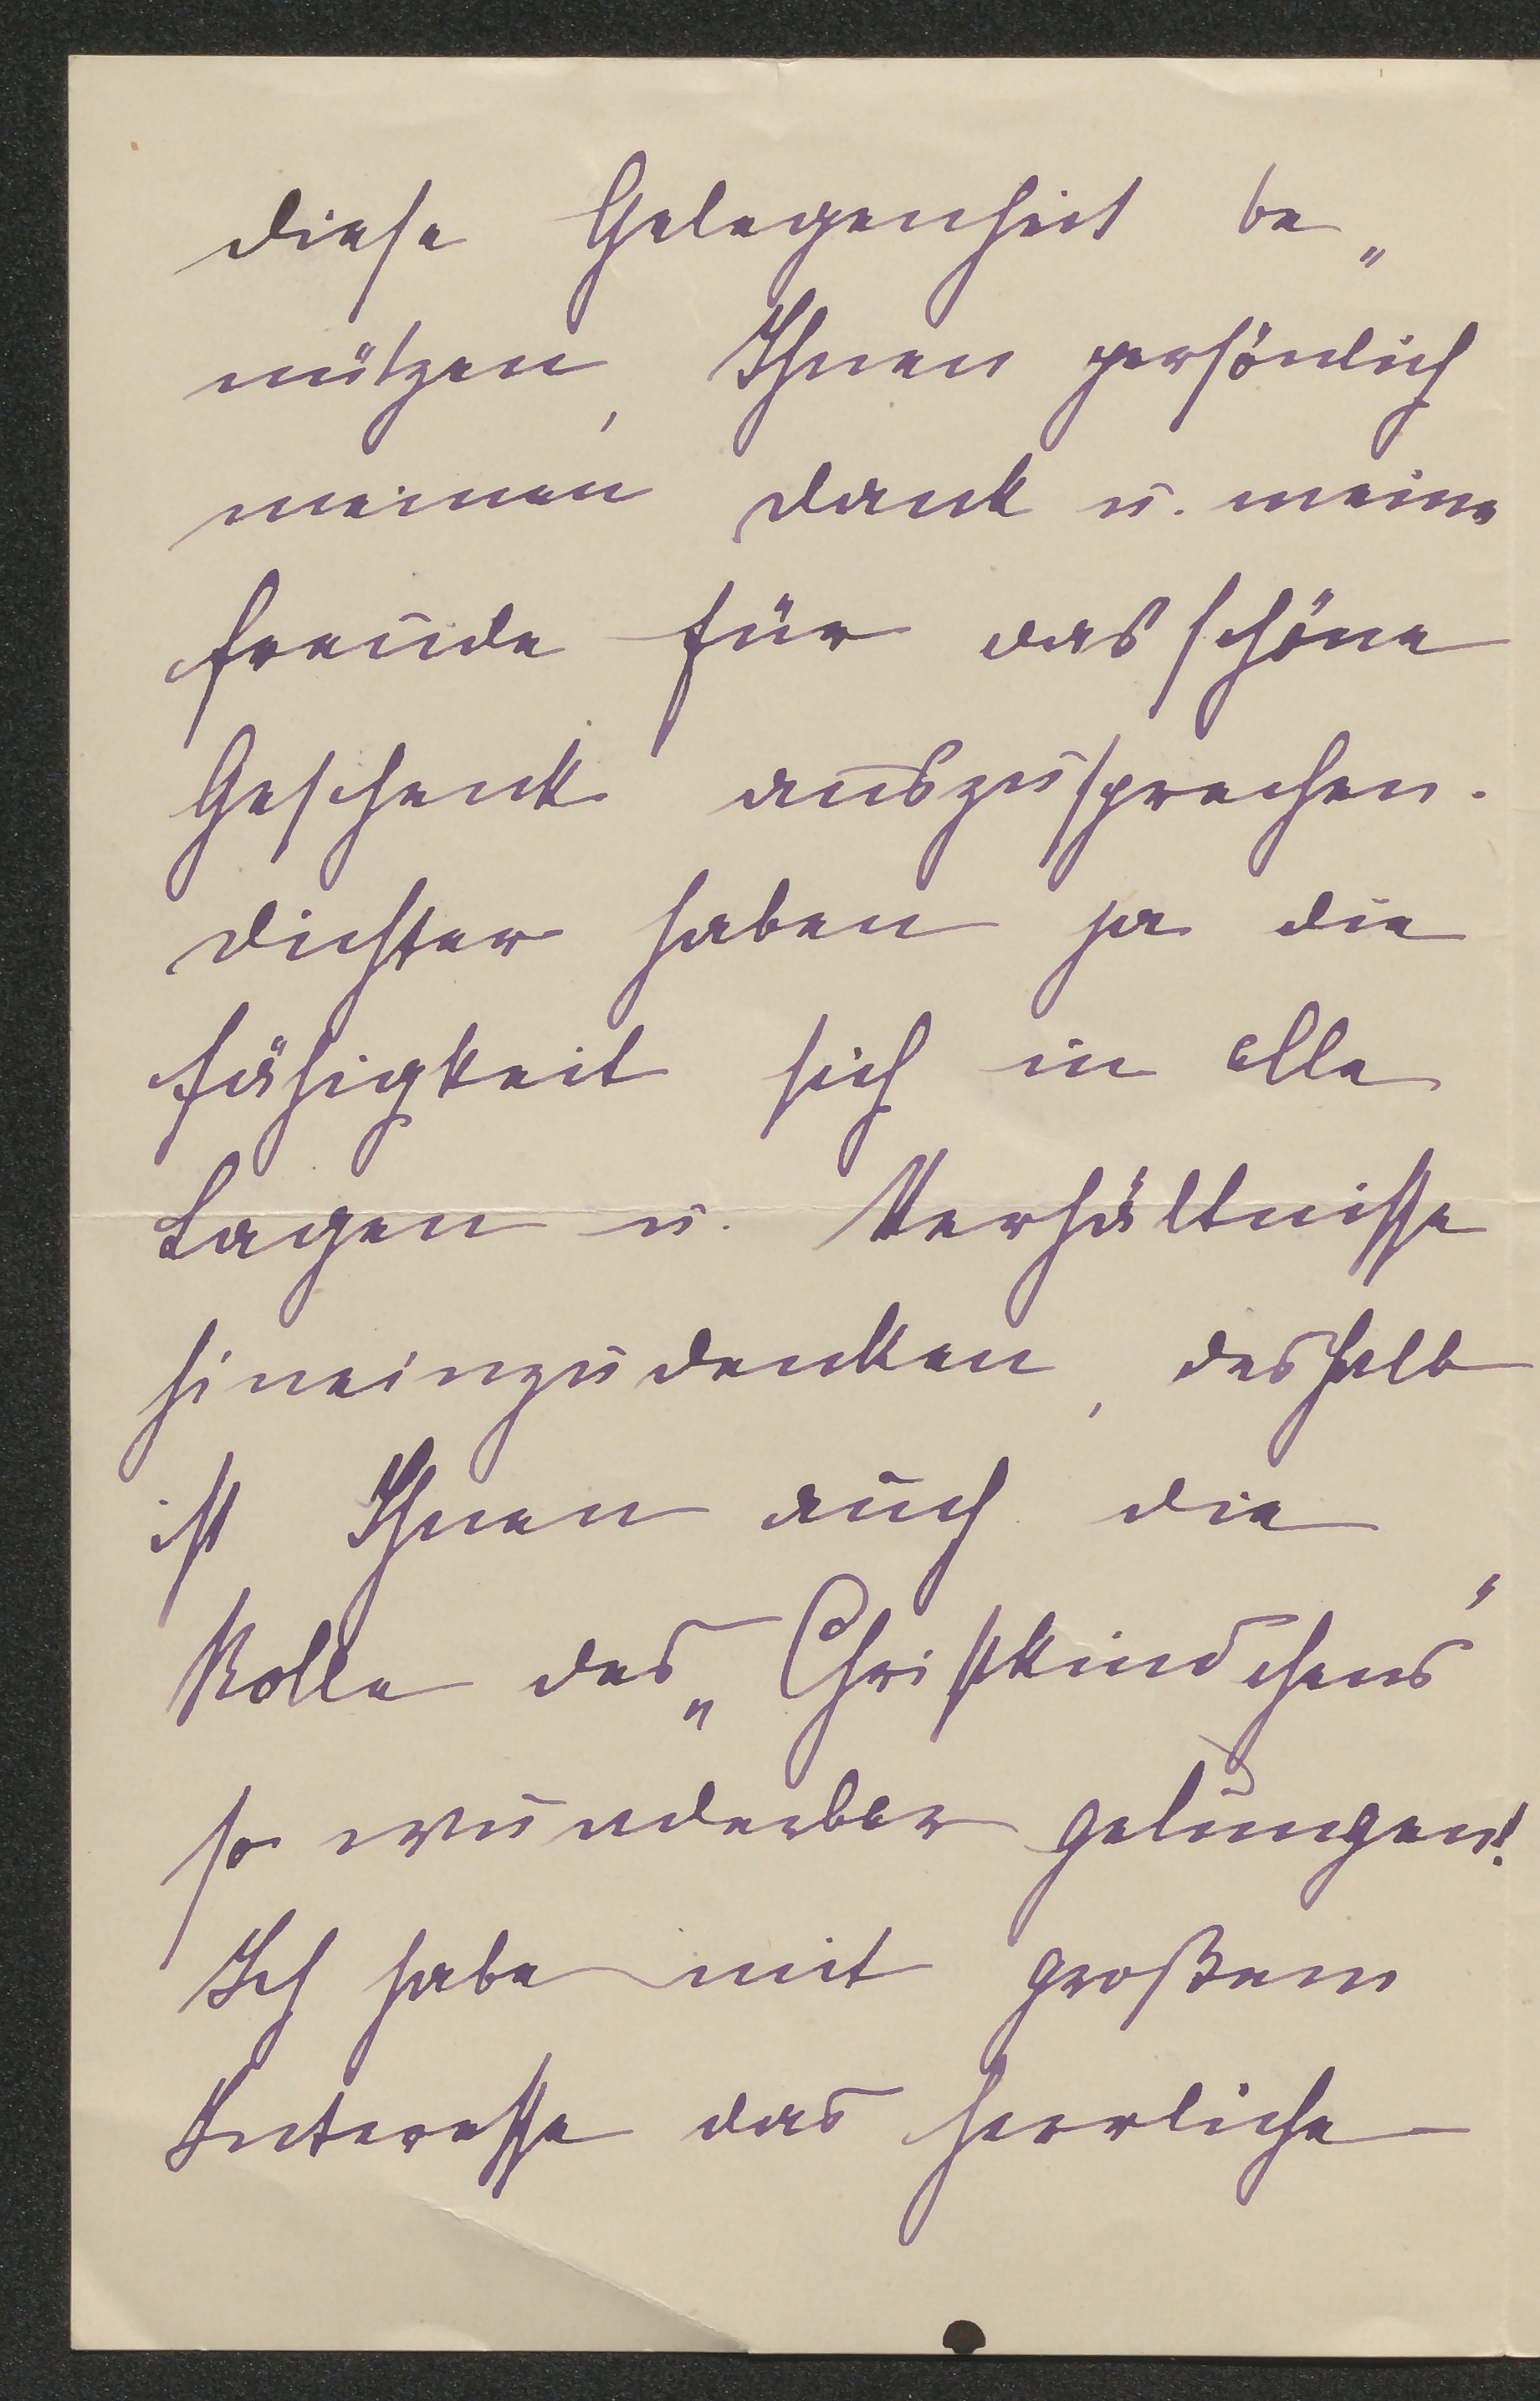 diese Gelegenheit be„
nützen, Ihnen persönlich
meinen Dank u. meine
Freude für das schöne
Geschenk auszusprechen.
Dichter haben ja die
Fähigkeit sich in alle
Lagen u. Verhältnisse
hineinzudenken, deshalb
ist Ihnen auch die
Rolle des „Christkindchens"
so wunderbar gelungen!
Ich habe mit großem
Interesse das herrliche